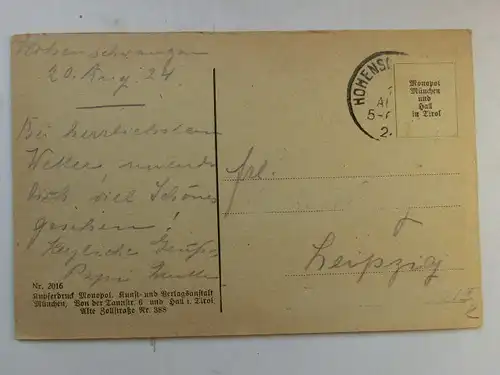 Hohenschwangau
20. Aug. 24
Bei herrlichstem
Wetter, unendlich
viel Schönes
gesehen!
Herzliche Grüße
Papi Mutti
Nr. 2016
Kupferdruck Monopol, Kunst- und Verlagsanstalt
München, Von der Tannstr. 6 und Hall i. Tirol
Alte Zollstraße Nr. 388
HOHENS
Monopol
München
und
Hall
in Tirol
Frl.
Leipzig